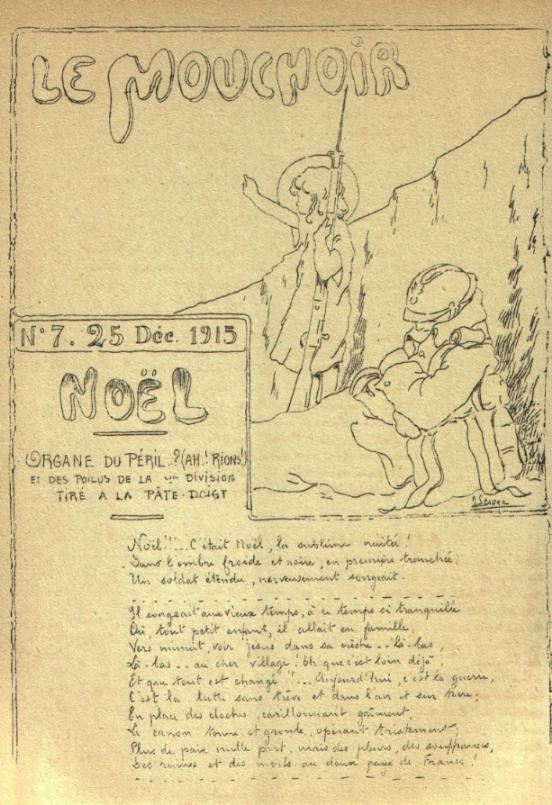 LE MOUCHOIR
N° 7. 25 Déc. 1915
NOËL
ORGANE DU PÉRIL..?(AH! RIONS!)
ET DES POILUS DE LA DIVISION
TIRÉ A LA PÂTE-DOIGT
Noël!!... C'était Noël, la sublime nuitée!
Dans l'ombre froide et noire, en première tranchée
Un soldat étendu, nerveusement songeait.
Il songeait aux vieux temps, à ce temps si tranquille
Où, tout petit enfant, il allait en famille,
Vers minuit, voir Jésus dans sa crèche... là-bas,
Là-bas... au cher village! Oh que c'est loin déjà!
Et que tout est changé!!... Aujourd'hui, c'est la guerre,
C'est la lutte sans trêve et dans l'air et sur terre;
En place des cloches, carillonnant gaîment,
Le canon tonne et gronde, opérant tristement;
Plus de paix nulle part, mais des pleurs, des souffrances,
Des ruines et des morts au doux pays de France!